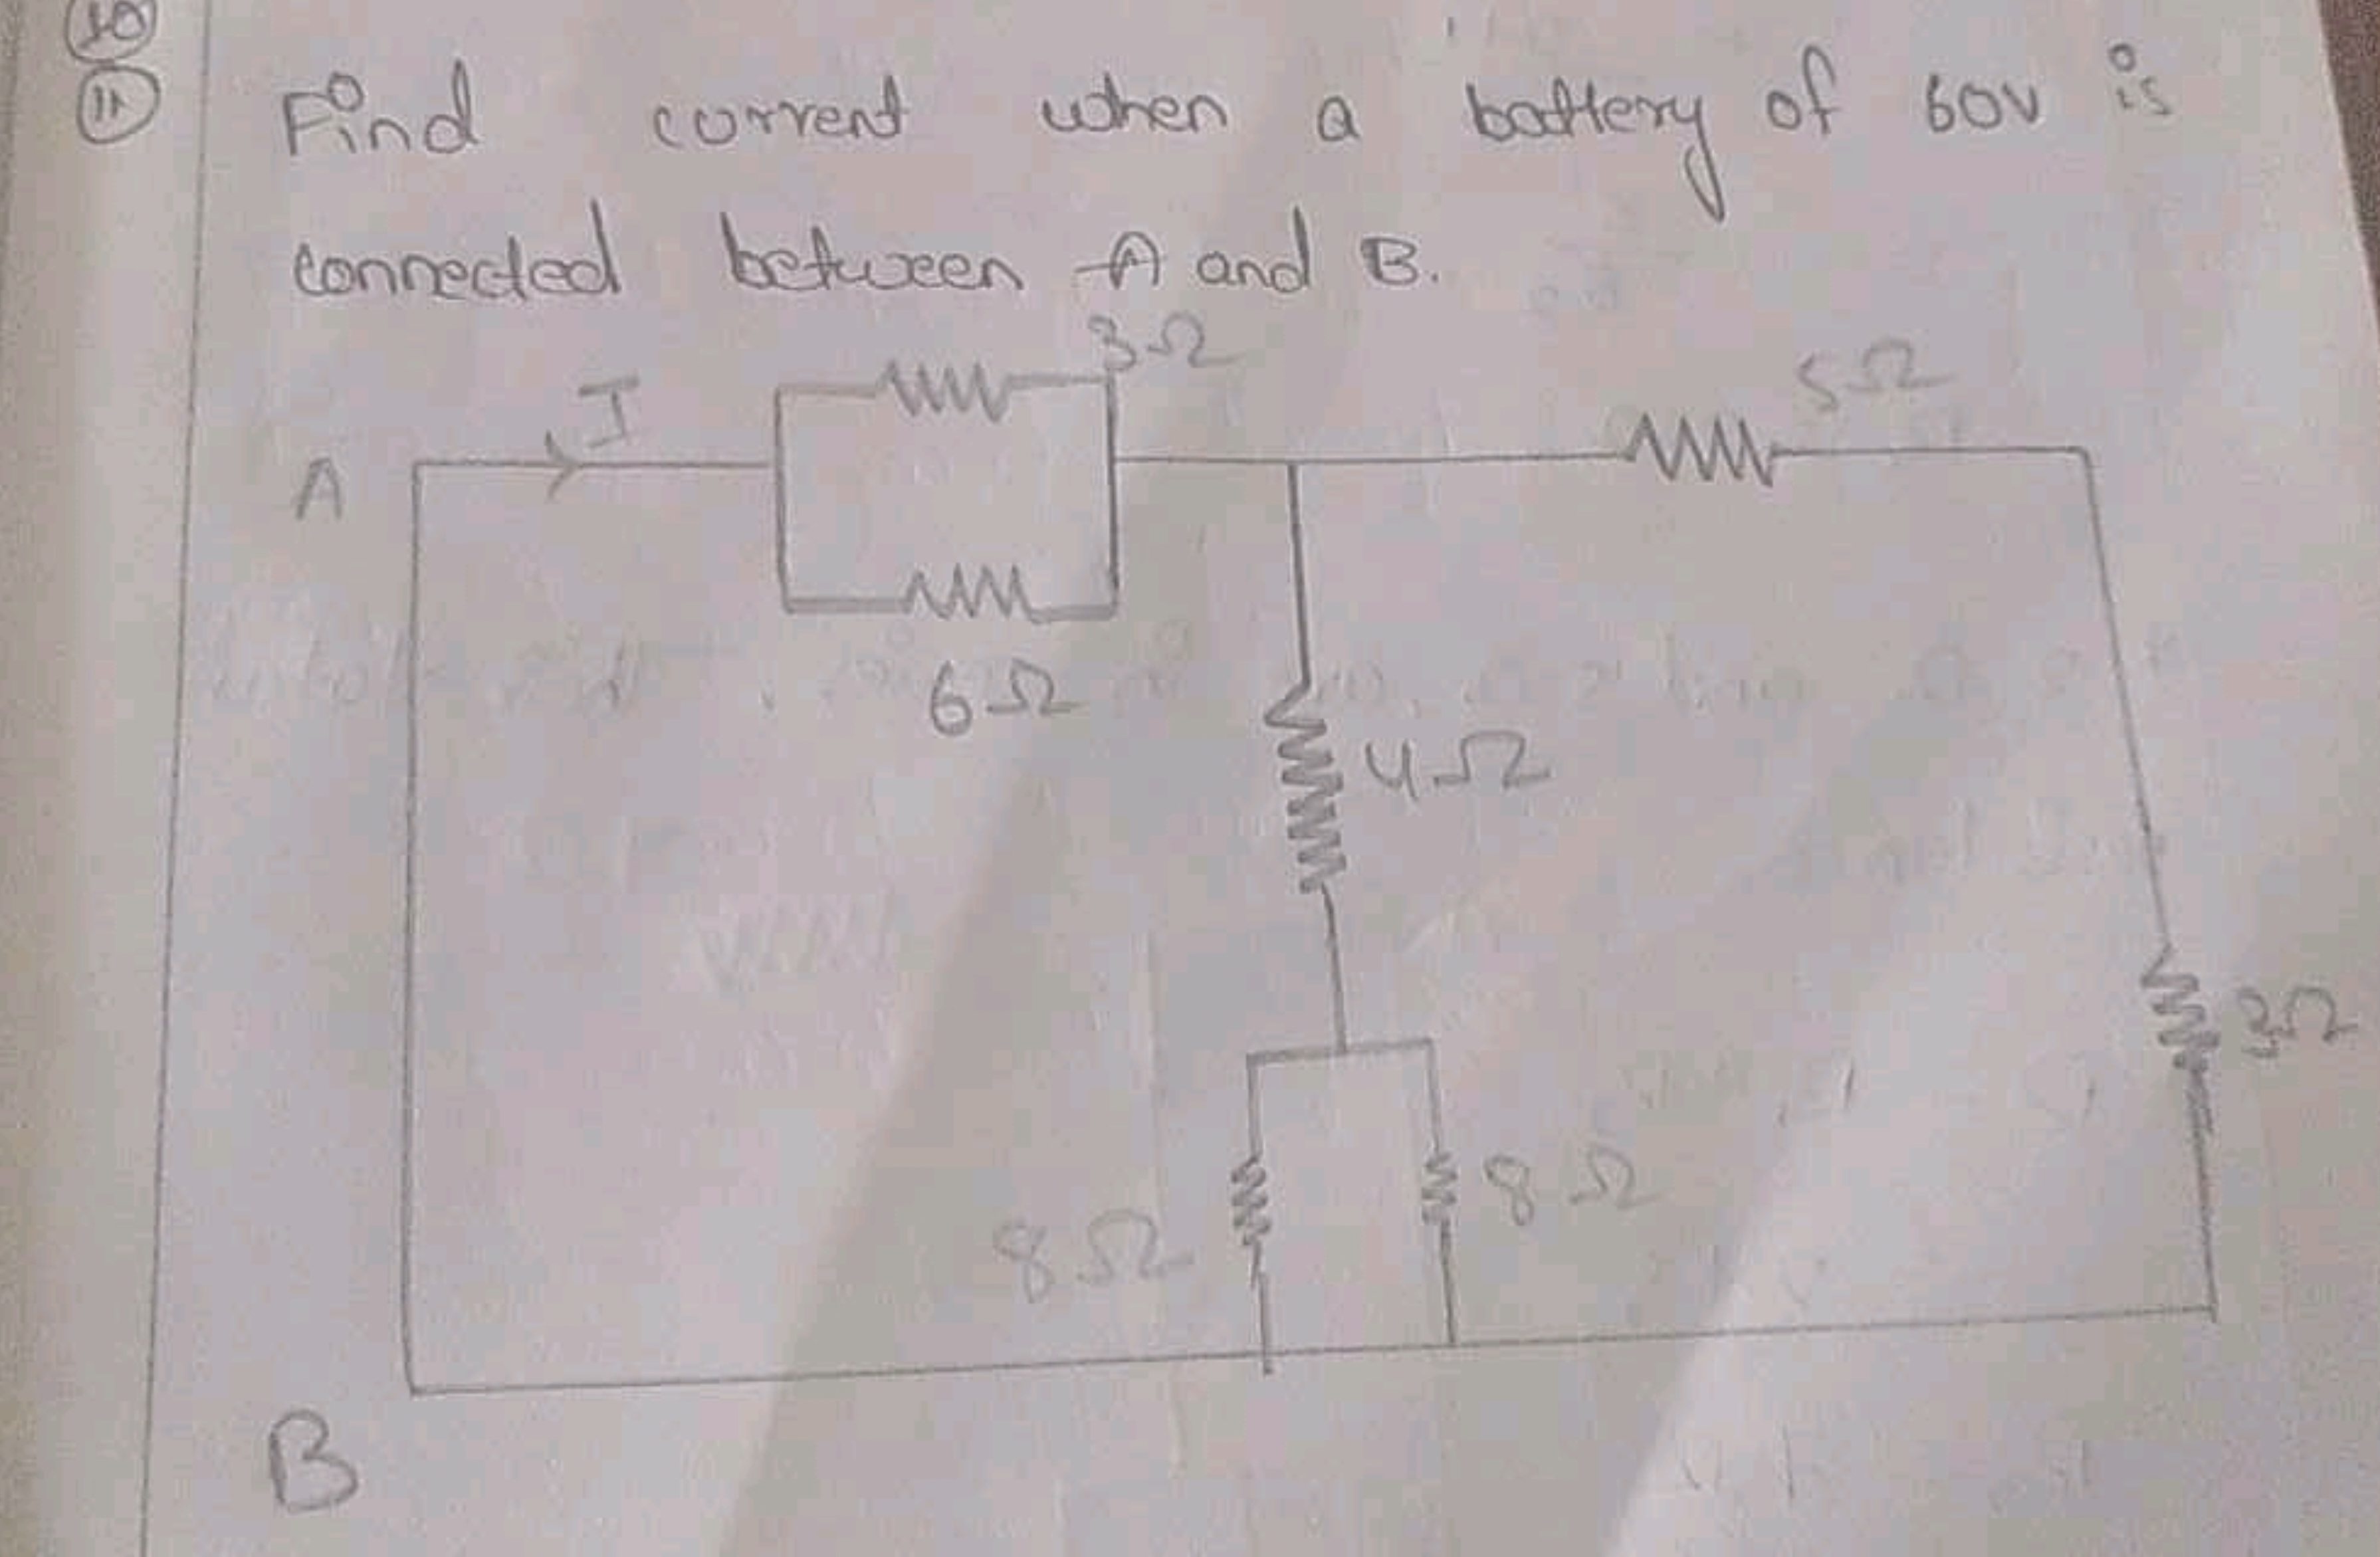 10
11
Find current when a battery of 60v is
connected between A and B.
3Ω
5Ω
I
A
6Ω
4Ω
3Ω
8Ω
8Ω
B